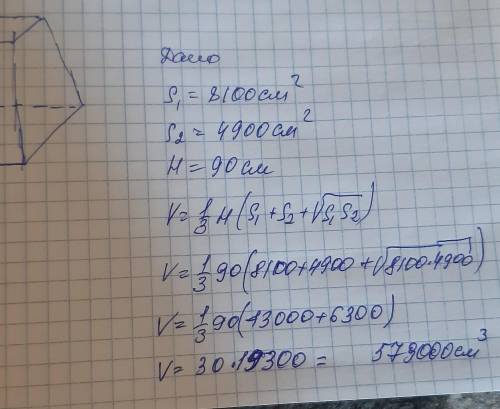 Дано
S₁ = 8100 см²
S₂ = 4900 см²
H = 90 см
V = 1/3 H (S₁ + S₂ + √S₁S₂)
V = 1/3 90 (8100 + 4900 + √8100·4900)
V = 1/3 90 (13000 + 6300)
V = 30·19300 = 579000 см³